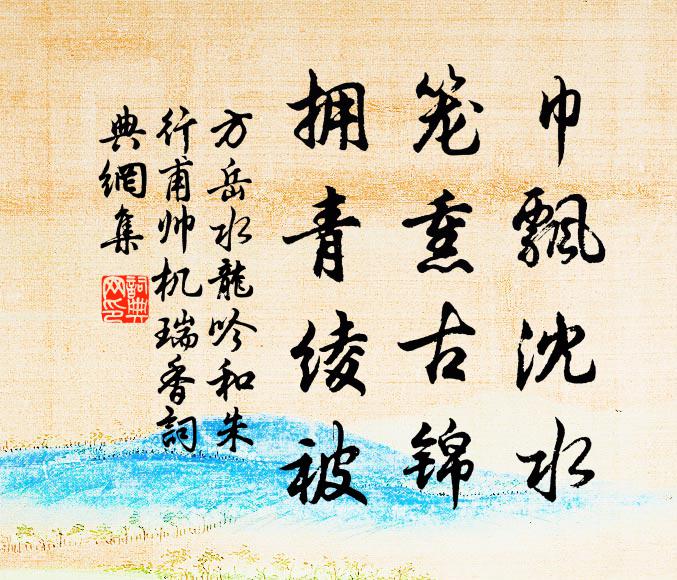 巾飄沈水
笼熏古锦
拥青绫被
方岳水龍吟和朱
行甫帅机瑞香詞
典網集
詞典
网印